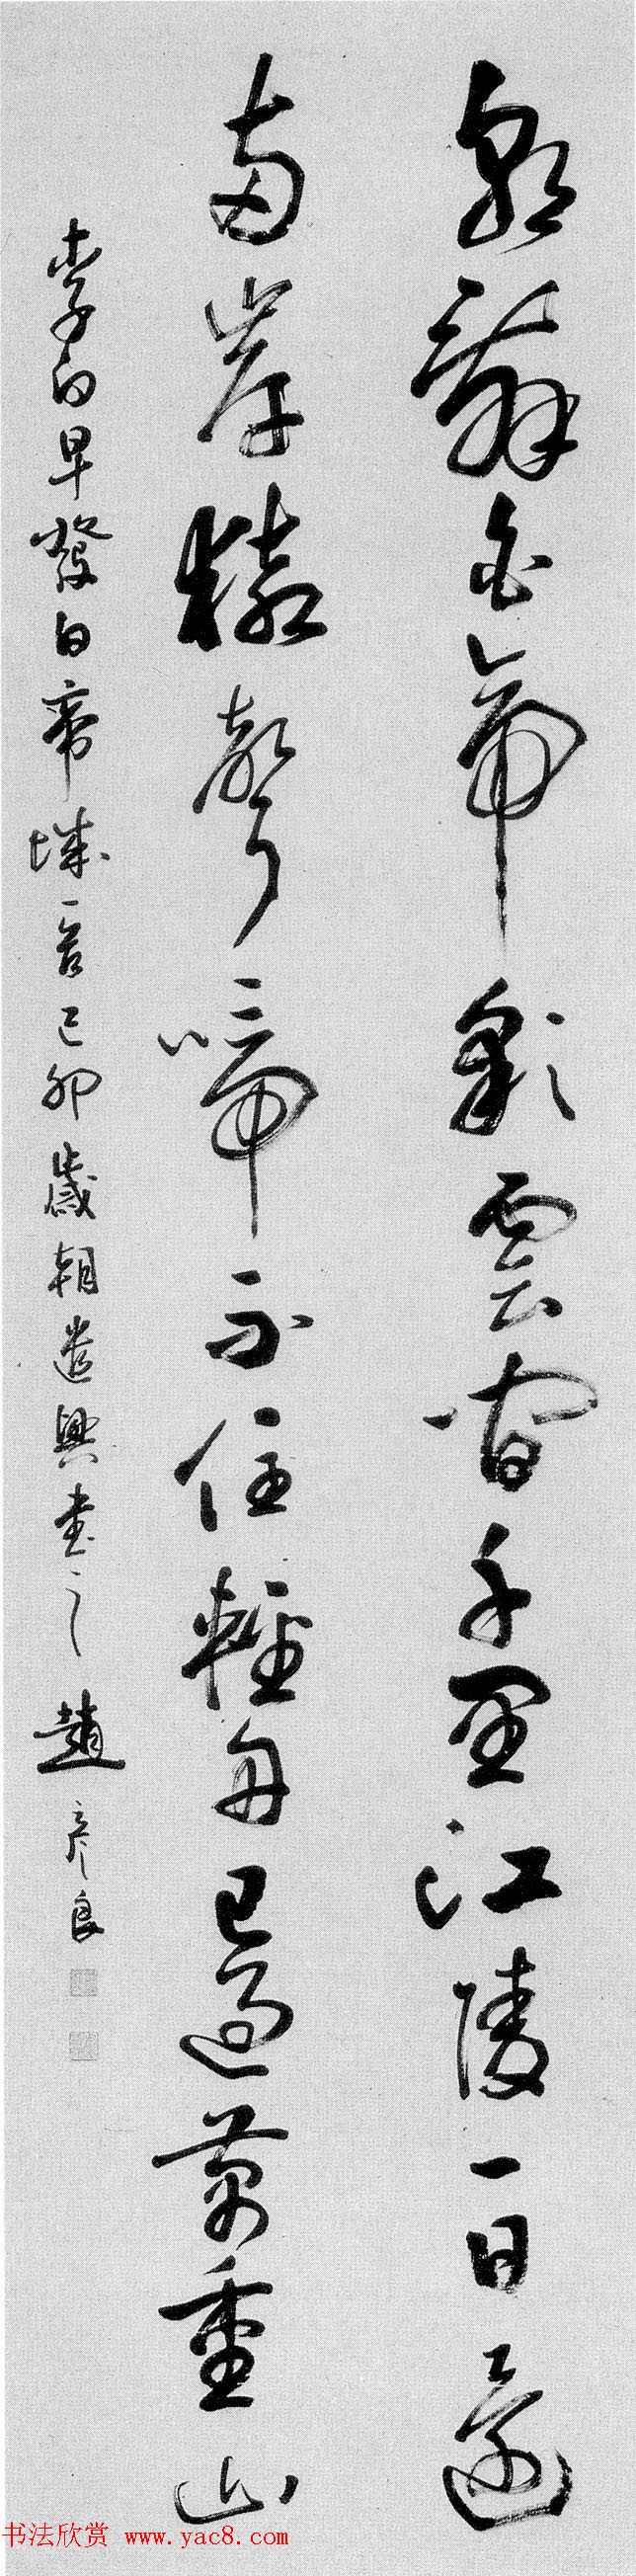 朝辭白帝彩雲間千里江陵一日還
兩岸猿聲啼不住輕舟已過萬重山
李白早發白帝城一首己卯歲朝遣興書之 趙彥良
书法欣赏 www.yac8.com